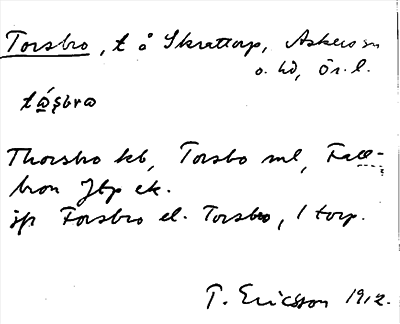 Torsbro, t å Skrattorp, Askers sn
o. hd, Ör. l.
tǻşbrω
Thorsbo kb, Torsbo ml, Fall-
bron Jbp ek.
jfr Forsbro el. Torsbro, 1 torp.
T. Ericsson 1912.